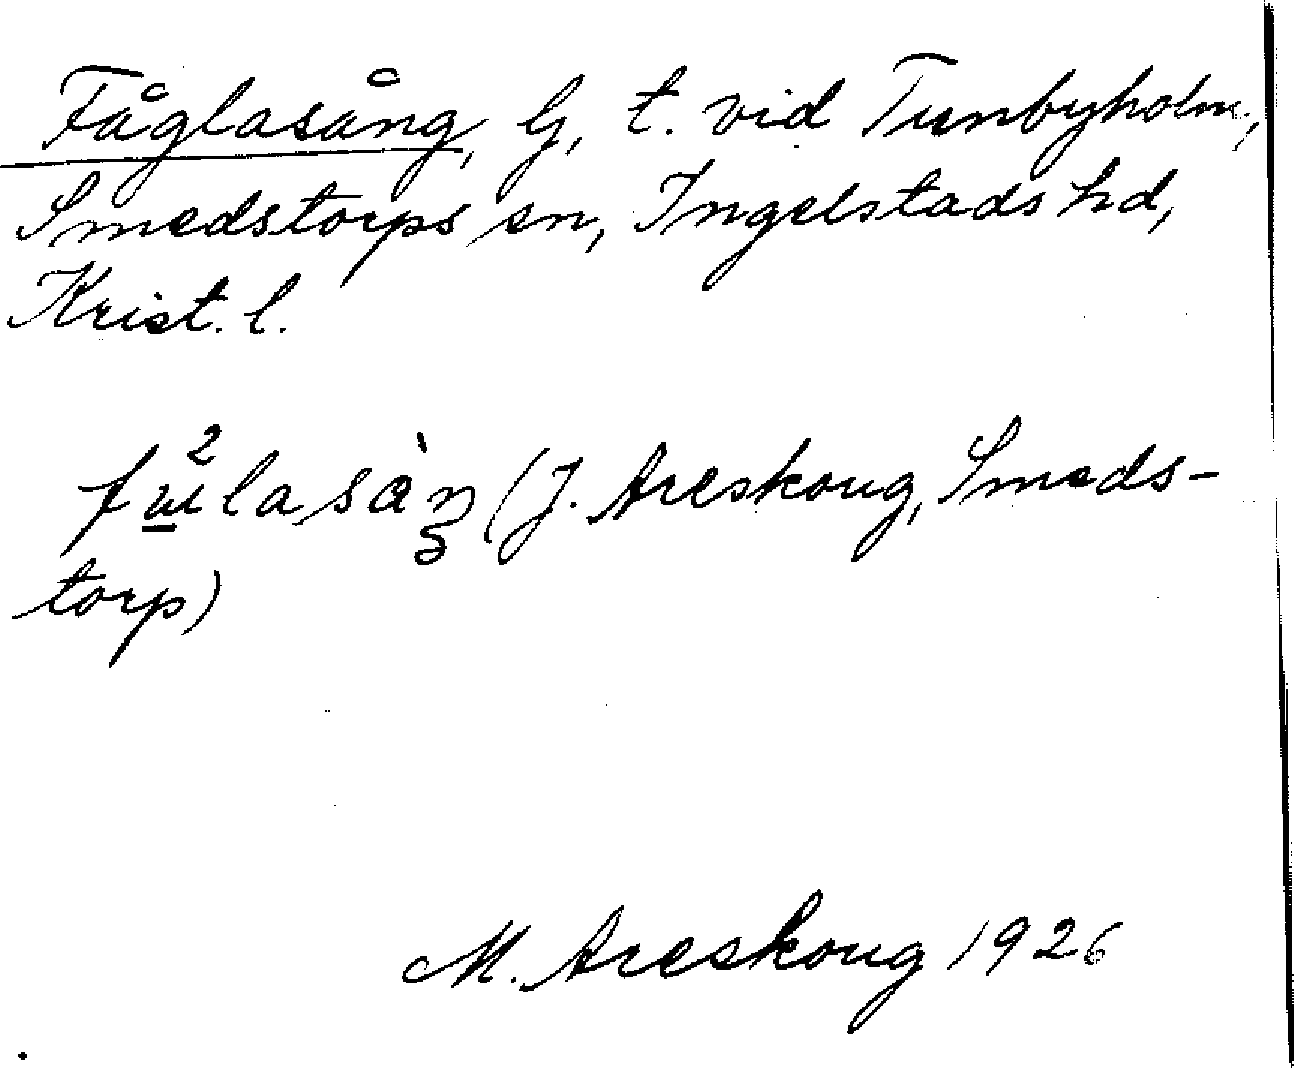 Fåglasång, G, t. vid Tunbyholm,
Smedstorps sn, Ingelstads hd,
Krist. l.
(J. Areskoug, Smeds-
torp)
M. Areskoug 1926